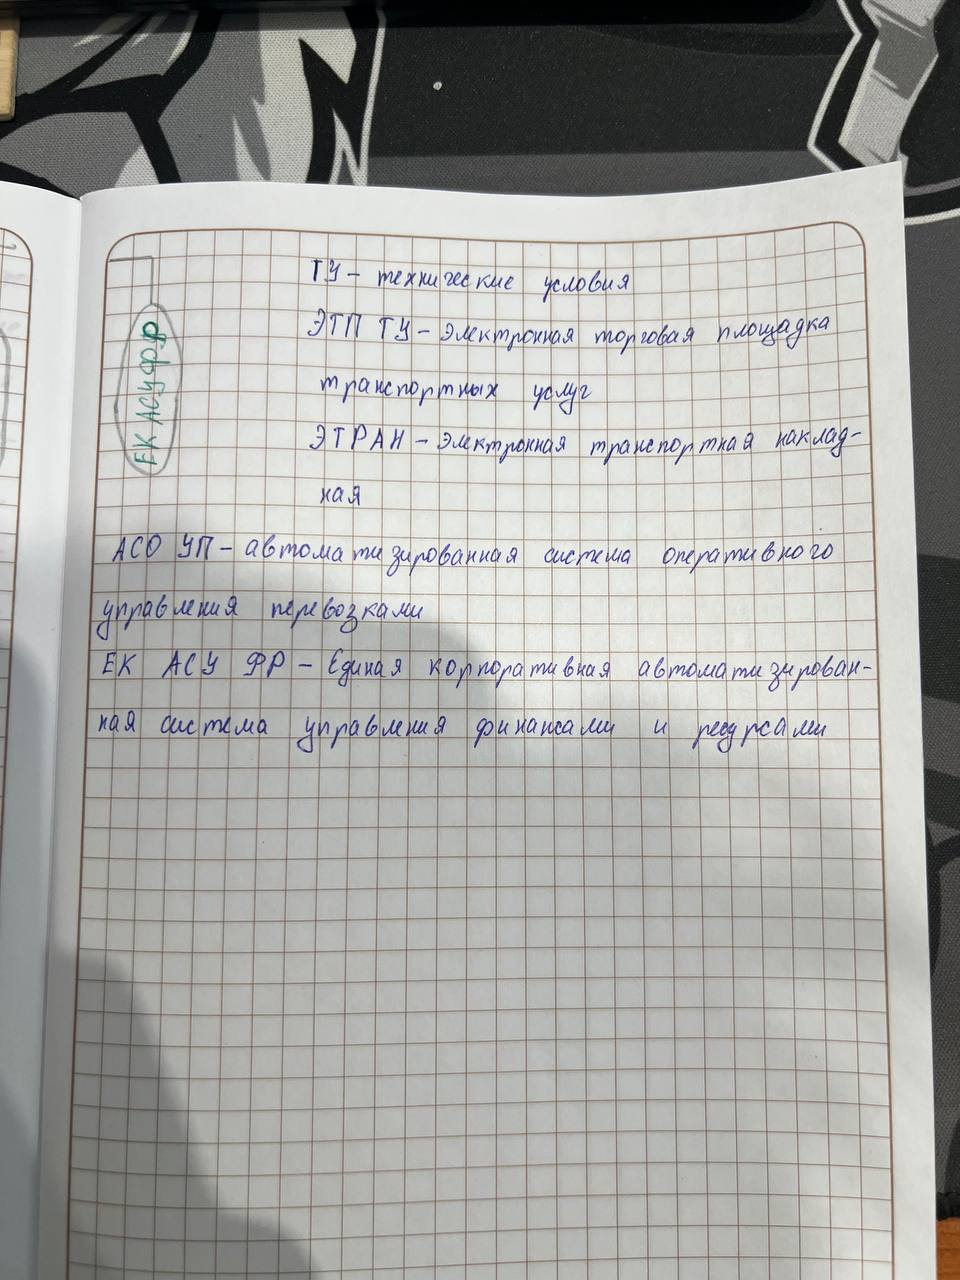 ЕК АСУФР
ТУ - технические условия
ЭТП ТУ - Электронная торговая площадка
транспортных услуг
ЭТРАН - Электронная транспортная наклад-
ная
АСО УП - автоматизированная система оперативного
управления перевозками
ЕК АСУ ФР - Единая корпоративная автоматизирован-
ная система управления финансами и ресурсами